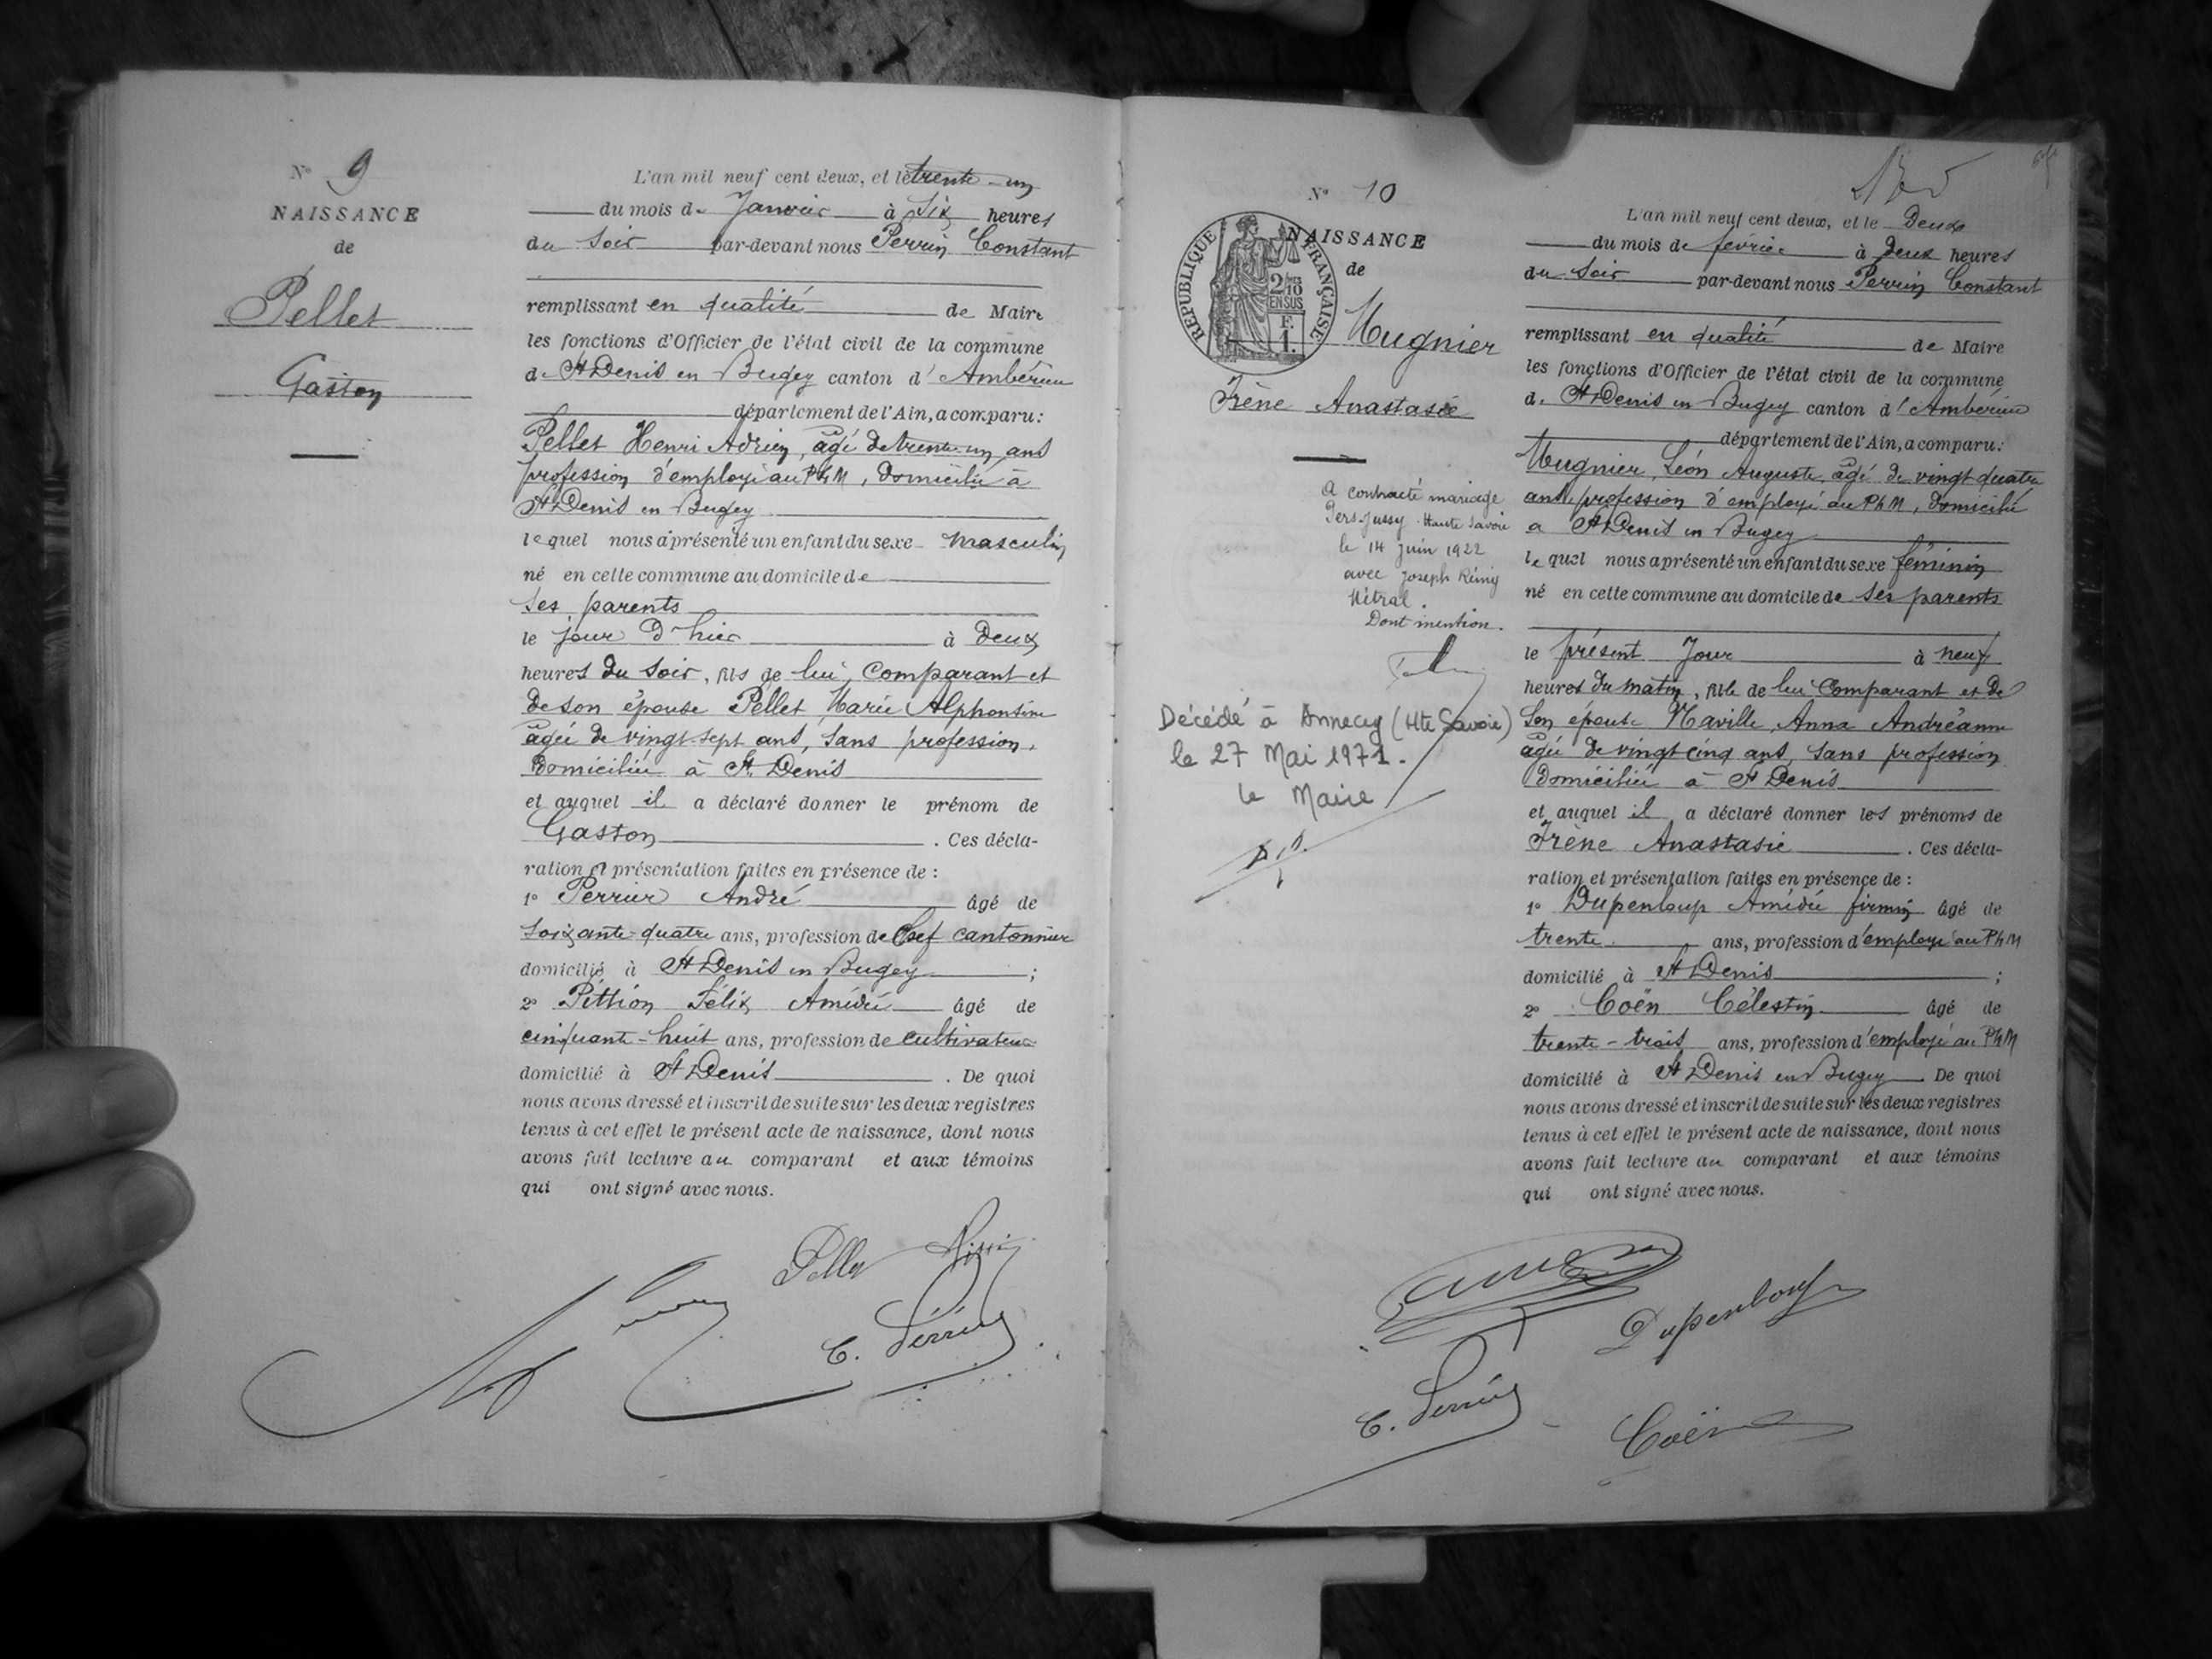 N° 9
NAISSANCE
de
Pellet
Gaston
L'an mil neuf cent deux, et le trente-un
du mois de Janvier à Six heures
du Soir par-devant nous Perrin Constant
remplissant en qualité de Maire
les fonctions d'Officier de l'état civil de la commune
de St Denis en Bugey canton d'Ambérieu
département de l'Ain, a comparu:
Pellet Henri Adrien, âgé de trente-un ans
profession d'employé au PLM, domicilié à
St Denis en Bugey
lequel nous a présenté un enfant du sexe masculin
né en cette commune au domicile de
ses parents
le jour d'hier à deux
heures du soir, fils de lui, comparant et
de son épouse Pellet Marie Alphonsine
âgée de vingt-sept ans, sans profession,
domiciliée à St Denis
et auquel il a déclaré donner le prénom de
Gaston. Ces décla-
ration et présentation faites en présence de :
1° Perrier André âgé de
soixante-quatre ans, profession de Chef cantonnier
domicilié à St Denis en Bugey ;
2° Pittion Félix Amédée âgé de
cinquante-huit ans, profession de cultivateur
domicilié à St Denis. De quoi
nous avons dressé et inscrit de suite sur les deux registres
tenus à cet effet le présent acte de naissance, dont nous
avons fait lecture au comparant et aux témoins
qui ont signé avec nous.
Pellet
C. Perrin
N° 10
NAISSANCE
de
RÉPUBLIQUE FRANÇAISE
2/10
EN SUS
F.
1.
Mugnier
Irène Anastasie
A contracté mariage
Pers-Jussy Haute Savoie
le 14 juin 1922
avec Joseph Rémy
Métral.
Dont mention.
Décédé à Annecy (Hte Savoie)
le 27 Mai 1971.
le Maire
L'an mil neuf cent deux, et le Deux
du mois de février à deux heures
du Soir par-devant nous Perrin Constant
remplissant en qualité de Maire
les fonctions d'Officier de l'état civil de la commune
de St Denis en Bugey canton d'Ambérieu
département de l'Ain, a comparu:
Mugnier, Léon Auguste, âgé de vingt quatre
ans, profession d'employé au PLM, domicilié
à St Denis en Bugey
lequel nous a présenté un enfant du sexe féminin
né en cette commune au domicile de ses parents
le présent Jour à neuf
heures du matin, fille de lui comparant et de
son épouse Naville, Anna Andréanne
âgée de vingt cinq ans, sans profession
domiciliée à St Denis
et auquel il a déclaré donner les prénoms de
Irène Anastasie. Ces décla-
ration et présentation faites en présence de :
1° Dupenloup Amédée firmin âgé de
trente ans, profession d'employé au PLM
domicilié à St Denis ;
2° Coën Célestin âgé de
trente-trois ans, profession d'employé au PLM
domicilié à St Denis en Bugey De quoi
nous avons dressé et inscrit de suite sur les deux registres
tenus à cet effet le présent acte de naissance, dont nous
avons fait lecture au comparant et aux témoins
qui ont signé avec nous.
Dupenloup
C. Perrin
Coën